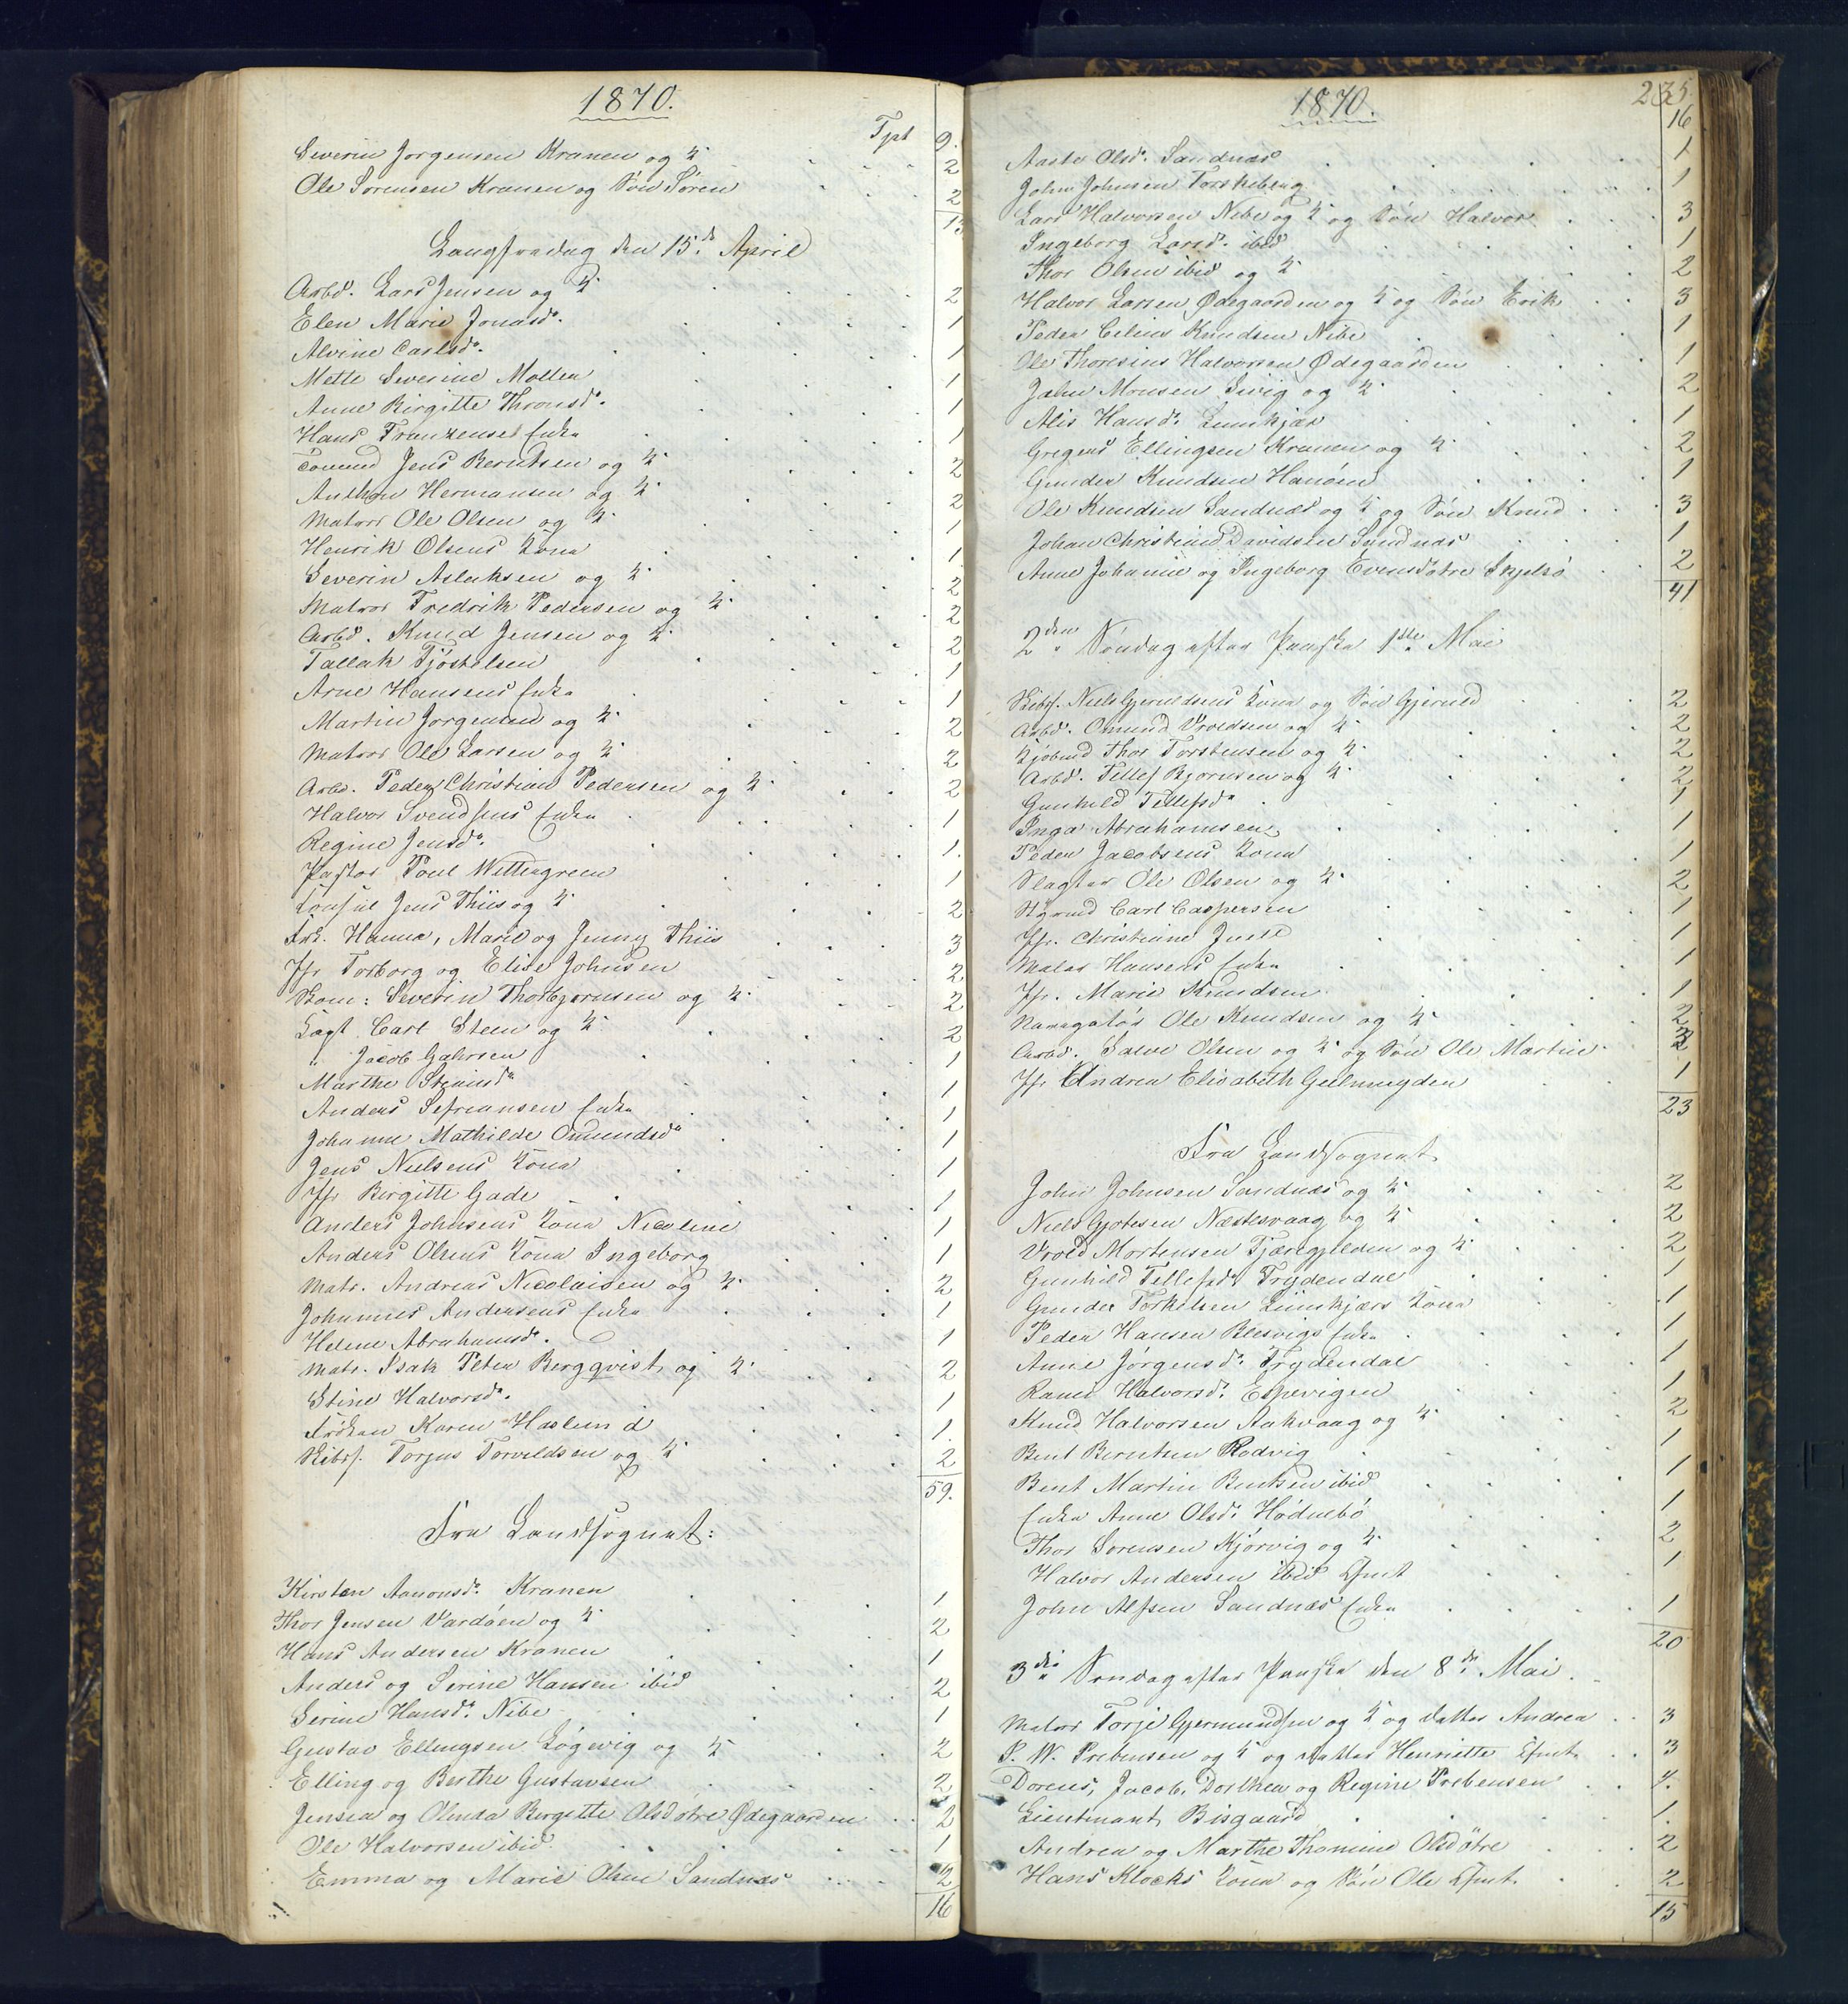 1870.
Tpt 9.
Severin Jørgensen Kranen og K. 2
Ole Sørensen Kranen og Søn Søren 2
13
Langfredag den 15de April
Arbd. Lars Jensen og K. 2
Elen Marie Jonasd. 1
Alvine Carlsd. 1
Mette Severine Møller 1
Anne Birgitte Thronsd. 1
Hans Franzensens Enke 1
Tømmd Jens Berntsen og K. 2
Anthon Hermansen og K. 2
Matros Ole Olsen og K. 1
Henrik Olsens Kone 1.
Severin Aslaksen og K. 2
Matros Fredrik Pedersen og K. 2
Arbd. Knud Jensen og K. 2
Tallak Tjøstelsen 1
Arne Hansens Enke 1
Martin Jørgensen og K. 2
Matros Ole Larsen og K. 2
Arbd. Peder Christian Pedersen og K. 2
Halvor Svendsens Enke 1
Regine Jensd. 1.
Pastor Poul Wettergreen 1
Consul Jens Thiis og K. 2
Frk. Hanna, Marie og Jenny Thiis 3
Jfr Torborg og Elise Johnsen 2
Skom: Severin Thorbjørnsen og K. 2
Capt. Carl Steen og K. 2
" Jacob Gahrsen 1
Marthe Steinsd. 1
Anders Sefreansen Enke 1
Johanne Mathilde Omundsd. 1
Jens Nielsens Kone 1
Jfr Birgitte Gade 1
Anders Johnsens Kone Nicoline 1
Anders Olsens Kone Ingeborg 1
Matr. Andreas Nicolaisen og K. 2
Johannes Andersens Enke 1
Helene Abrahamsd. 1
Matr. Isak Peter Bergqvist og K. 2
Stine Halvorsd. 1
Frøken Karen Haslund 1.
Skibsf. Torjus Torvildsen og K. 2
59.
Fra Landsognet:
Kirsten Aanonsd. Kranen 1
Thor Jensen Vardøen og K. 2
Hans Andersen Kranen 1
Anders og Serine Hansen ibid 2
Serine Hansd. Nibe 1
Gustav Ellingsen Løgevig og K. 2
Elling og Berthe Gustavsen 2
Jensea og Olenda Birgitte Olsdøtre Ødegaarden 2
Ole Halvorsen ibid 1
Emma og Marie Olsen Sandnæs 2
16
1870.
235.
16
Aaste Olsd. Sandnæs 1
John Johnsen Torskeberg 1
Lars Halvorsen Nibe og K. og Søn Halvor 3
Ingeborg Larsd. ibid 1
Thor Olsen ibid og K. 2
Halvor Larsen Ødegaarden og K. og Søn Erik 3
Peder Celius Knudsen Nibe 1
Ole Thoresius Halvorsen Ødegaarden 1
John Monsen Sivig og K. 2
Alis Hansd. Lunskjær 1
Gregers Ellingsen Kranen og K. 2
Gunder Knudsen Hanøen 1
Ole Knudsen Sandnæs og K. og Søn Knud 3
Johan Christian Davidsen Sandnæs 1
Anne Johanne og Ingeborg Evensdøtre Skjelsø 2
41
2den Søndag efter Paaske 1ste Mai
Skibsf. Niels Gjeruldsens Kone og Søn Gjeruld 2
Arbd. Omund Vroldsen og K. 2
Kjøbmd Thor Torstensen og K. 2
Arbd. Tellef Bjørnsen og K. 2
Gunhild Tellefsd. 1
Inga Abrahamsen 1
Peder Jacobsens Kone 1
Slagter Ole Olsen og K. 2
Styrmd Carl Caspersen 1
Jfr. Christiane Juell 1
Maler Hansens Enke 1
Jfr. Marie Knudsen 1
Navigatør Ole Knudsen og K. 2
Arbd. Salve Olsen og K. og Søn Ole Martin 3
Jfr Andrea Elisabeth Geelmuyden 1
23
Fra Landsognet
John Johnsen Sandnæs og K. 2
Niels Gjotesen Næstesvaag og K. 2
Vrold Mortensen Tjæregjelden og K. 2
Gunhild Tellefsd. Frydendal 1
Gunder Torkelsen Lunskjærs Kone 1
Peder Hansen Blesvigs Enke 1
Anne Jørgensd. Frydendal 1
Ranei Halvorsd. Espevigen 1
Knud Halvorsen Aakvaag og K. 2
Bent Berntsen Rodvig 1
Bent Martin Bentsen ibid 1
Enke Anne Olsd. Hødnebø 1
Thor Sørensen Kjørvig og K. 2
Halvor Andersen ibid Cfmt 1
John Alfsen Sandnæs Enke 1
20
3die Søndag efter Paaske den 8de Mai.
Matros Torje Gjermundsen og K. og Datter Andrea 3
P. W. Prebensen og K. og Datter Henriette Cfmt. 3
Doreus, Jacob, Dorthea og Regine Prebensen 4.
Lieutenant Bisgaard 1.
Andrea og Marthe Thomine Olsdøtre 2
Hans Klocks Kone og Søn Ole Cfmt. 2
15